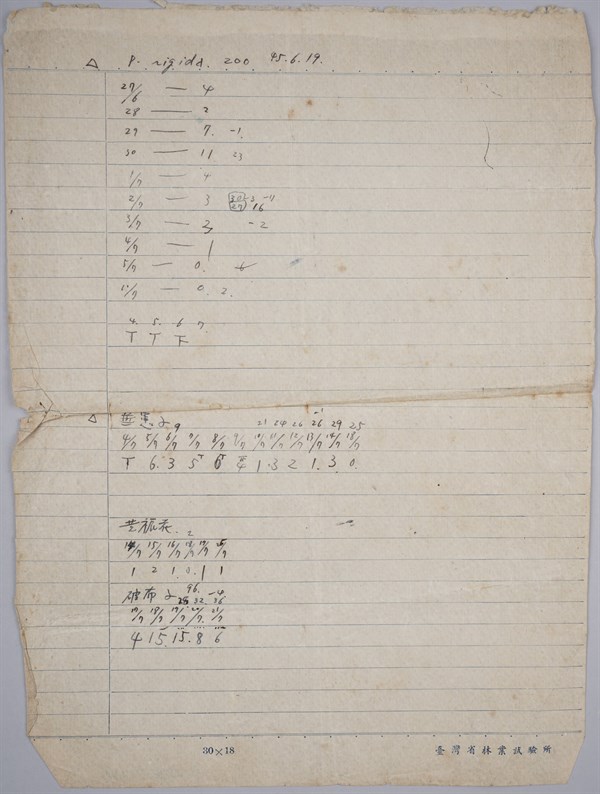 △ P. rigida. 200 45.6.19.
27/6 — 4
28 — 2
29 — 7. -1.
30 — 11 23
1/7 — 4
2/7 — 3
3/7 — 3 -2
4/7 — 1
5/7 — 0.
— 0. 2.
4. 5. 6 7
T T 下
△ 9
21 24 26 26. 29 25
4/7 5/7 6/7 7/7 8/7 9/7 10/7 11/7 12/7 13/7 14/7 15/7
T 6. 3 5 6 4 1. 3 2 1. 3 0.
2
14/7 15/7 16/7 18/7 19/7
1 2 1. 0. 1 1
破布子 96. -4
32 36
17/7 18/7 19/7 20/7 21/7
4 15. 15. 8 6
30×18
臺灣省林業試驗所